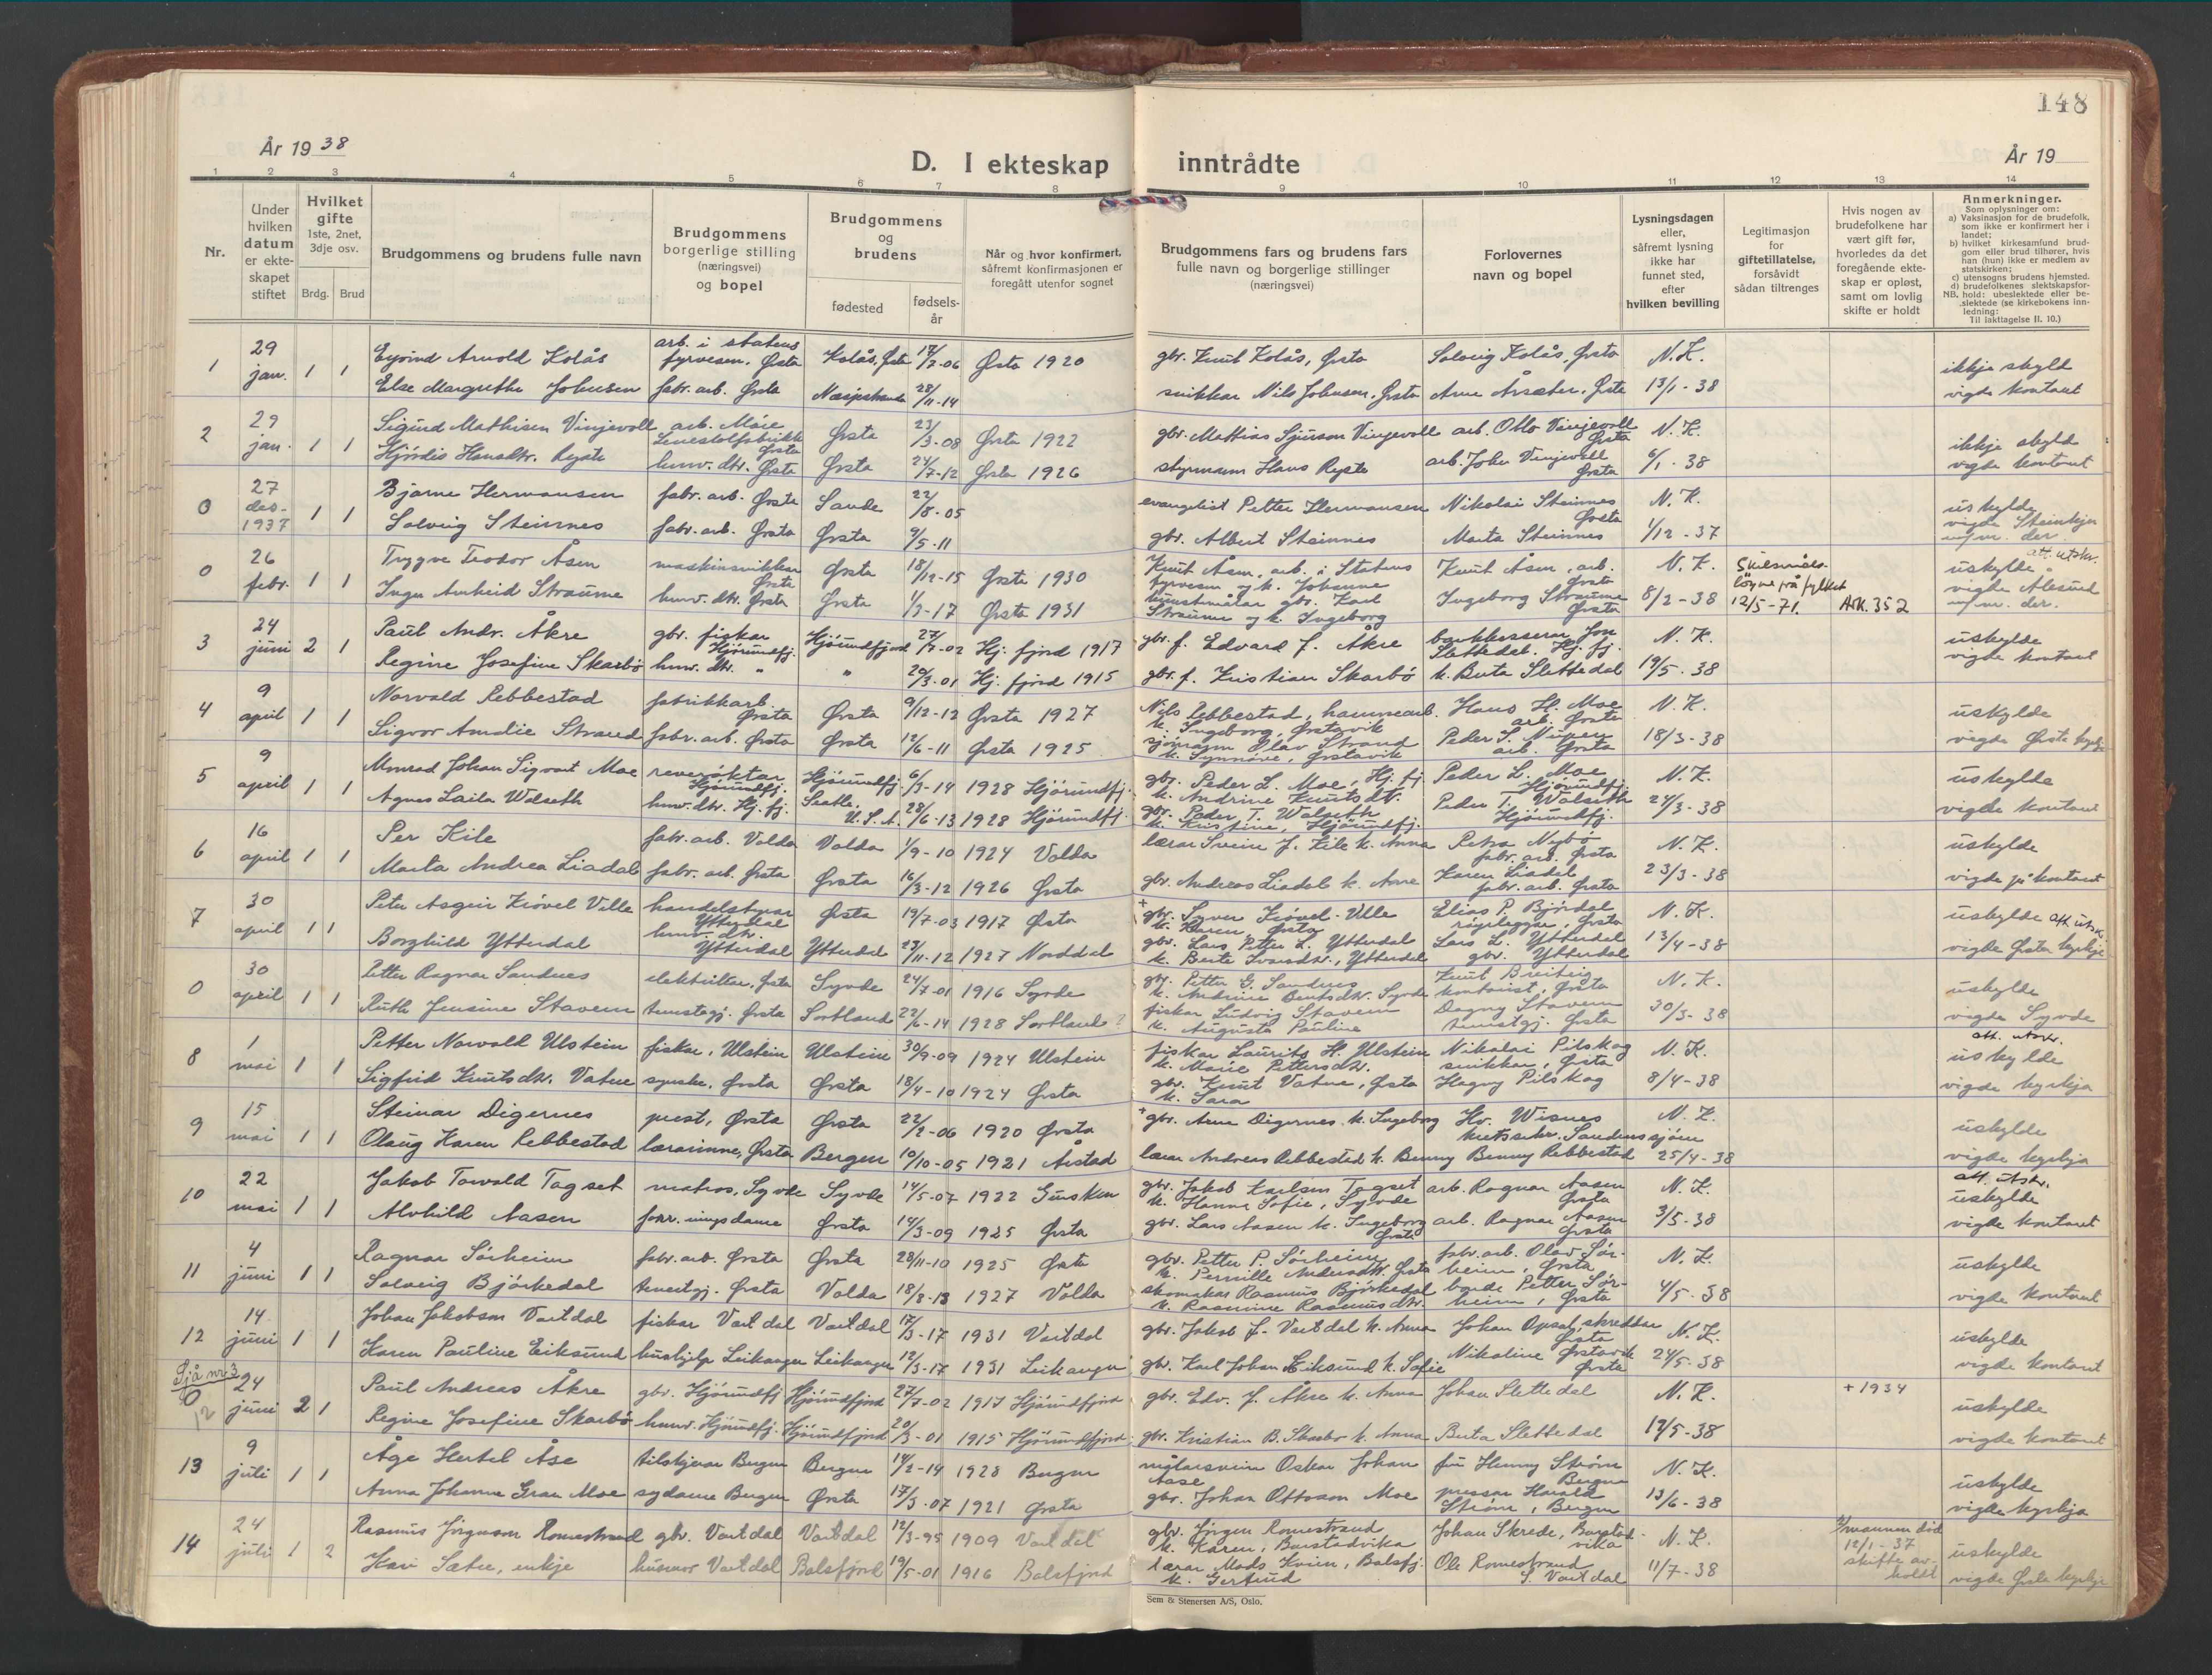 148
År 1938
D. I ekteskap inntrådte
År 19
1 2 3 4 5 6 7 8 9 10 11 12 13 14
Nr.
Under hvilken datum er ekteskapet stiftet
Hvilket gifte
1ste, 2net, 3dje osv.
Brdg. Brud
Brudgommens og brudens fulle navn
Brudgommens borgerlige stilling (næringsvei) og bopel
Brudgommens og brudens
fødested
fødselsår
Når og hvor konfirmert, såfremt konfirmasjonen er foregått utenfor sognet
Brudgommens fars og brudens fars fulle navn og borgerlige stillinger (næringsvei)
Forlovernes navn og bopel
Lysningsdagen eller, såfremt lysning ikke har funnet sted, efter hvilken bevilling
Legitimasjon for giftetillatelse, forsåvidt sådan tiltrenges
Hvis nogen av brudefolkene har vært gift før, hvorledes da det foregående ekteskap er opløst, samt om lovlig skifte er holdt
Anmerkninger.
Som oplysninger om:
a) Vaksinasjon for de brudefolk, som ikke er konfirmert her i landet;
b) hvilket kirkesamfund brudgom eller brud tilhører, hvis han (hun) ikke er medlem av statskirken;
c) utensogns brudens hjemsted.
d) brudefolkenes slektskapsforhold: ubeslektede eller beslektede (se kirkebokens innledning:
NB.
Til iakttagelse II. 10.)
1 29 jan. 1 1 Eyvind Arnold Kolås arb. i statens fyrvesen, Ørsta Kolås, Ørsta 17/7-06 Ørsta 1920 gbr. Knut Kolås, Ørsta Solveig Kolås, Ørsta N.K. ikkje skyld
Else Margrethe Johnsen fabr. arb. Ørsta 28/11-14 snikkar Nils Johnsen, Ørsta Arne Årsæter, Ørsta 13/1-38 vigde kontoret
2 29 jan. 1 1 Sigurd Mathisen Vinjevoll arb. Møre Lenestolfabrikk Ørsta Ørsta 23/3-08 Ørsta 1922 gbr. Mattias Sjurson Vinjevoll arb. Otto Vinjevoll Ørsta N.K. ikkje skyld
Hjördis Hansdtr. Ryste husv. dtr. Ørsta Ørsta 24/7-12 Ørsta 1926 styrmann Hans Ryste arb. John Vinjevoll Ørsta 6/1-38 vigde kontoret
0 27 des. 1937 1 1 Bjarne Hermansen fabr. arb. Ørsta Sande 22/8-05 evangelist Petter Hermansen Nikolai Steinnes Ørsta N.K. uskylde
Solveig Steinnes fabr. arb. Ørsta Ørsta 9/5-11 gbr. Albert Steinnes Marta Steinnes 1/12-37 vigde Steinkjer m/m. der.
0 26 febr. 1 1 Trygve Teodor Åsen maskinsnikkar Ørsta Ørsta 18/12-15 Ørsta 1930 Knut Åsen, arb. i Statens fyrvesen og k. Johanne Knut Åsen, arb. Ørsta N.K. Skilsmåls- löyve frå fylket 12/5-71. ARK. 352 uskylde. att. utskr.
Inga Anheid Straume husv. dtr. Ørsta Ørsta 1/3-17 Ørsta 1931 kunstmålar gbr. Karl Straume og k. Ingeborg Ingeborg Straume Ørsta 8/2-38 vigde Ålesund m/m. der.
3 24 juni 2 1 Paul Andr. Åkre gbr. fiskar Hjörundfj. Hjörundfjord 27/7-02 Hj. fjord 1917 gbr. f. Edvard J. Åkre bankkasserar Jon Slettedal. Hj. fj. N.K. uskylde
Regine Josefine Skarbö husv. dtr. " " 20/3-01 Hj. fjord 1915 gbr. f. Kristian Skarbö k. Berta Slettedal 19/5-38 vigde kontoret
4 9 april 1 1 Norvald Rebbestad fabrikkarb. Ørsta Ørsta 9/12-12 Ørsta 1927 Nils Rebbestad, hamnearb. k. Ingeborg, Ørstavik Hans H. Moe arb. Ørsta N.K. uskylde
Sigvor Amalie Strand fabr. arb. Ørsta Ørsta 12/6-11 Ørsta 1925 sjömann Olav Strand k. Synnøve, Ørstavik Peder S. Nupen arb. Ørsta 18/3-38 vigde Ørsta kyrkje
5 9 april 1 1 Monrad Johan Sigvart Moe reverøktar Hjörundfj. Hjörundfj. 6/3-14 1928 Hjörundfj. gbr. Peder L. Moe, Hj. fj. k. Andrine Knutsdtr. Peder L. Moe Hjörundfj. N.K. uskylde
Agnes Laila Walseth husv. dtr. Hj. fj. Seatle, U.S.A. 28/6-13 1928 Hjörundfj. gbr. Peder T. Walseth k. Kristine, Hjörundfj. Peder T. Walseth Hjörundfj. 24/3-38 vigde kontoret
6 16 april 1 1 Per Kile fabr. arb. Volda Volda 1/9-10 1924 Volda lærar Svein J. Kile k. Anna Petra Nybö fabr. arb. Ørsta N.K. uskylde
Marta Andrea Liadal fabr. arb. Ørsta Ørsta 16/3-12 1926 Ørsta gbr. Andreas Liadal k. Anne Karen Liadal fabr. arb. Ørsta 23/3-38 vigde på kontoret
7 30 april 1 1 Peter Asgeir Krøvel Velle handelstyrar Ytterdal Ørsta 19/7-03 1917 Ørsta + gbr. Syver Krøvel-Velle k. Karen Ørsta Elias P. Bjørdal røyrleggjar, Ørsta N.K. uskylde att. utskr.
Borghild Ytterdal husv. dtr. Ytterdal Ytterdal 23/11-12 1927 Norddal gbr. Lars Petter L. Ytterdal k. Berte Ivarsdtr., Ytterdal Lars L. Ytterdal gbr. Ytterdal 13/4-38 vigde Ørsta kyrkje
0 30 april 1 1 Petter Ragnar Sandnes elektrikar, Ørsta Syvde 24/7-01 1916 Syvde gbr. Petter G. Sandnes k. Andrine Bentsdtr. Syvde Knut Breiteig kontorist, Ørsta N.K. uskylde
Ruth Jensine Stavem tenestgj. Ørsta Sortland 22/6-14 1928 Sortland? fiskar Ludvig Stavem k. Augusta Pauline Dagny Stavem tenestgj. Ørsta 30/3-38 vigde Syvde
8 1 mai 1 1 Petter Norvald Ulstein fiskar, Ulstein Ulstein 30/9-09 1924 Ulstein fiskar Laurits H. Ulstein k. Marie Pettersdtr. Nikolai Pilskog snikkar, Ørsta N.K. att. utskr. uskylde
Sigfrid Knutsdtr. Vatne syerske, Ørsta Ørsta 18/4-10 1924 Ørsta gbr. Knut Vatne, Ørsta k. Sara Hagny Pilskog 8/4-38 vigde kyrkja
9 15 mai 1 1 Steinar Digernes prest, Ørsta Ørsta 22/2-06 1920 Ørsta + gbr. Arne Digernes k. Ingeborg Hv. Wisnes kretssekr. Sandnessjøen N.K. uskylde
Olaug Karen Rebbestad lærarinne, Ørsta Bergen 10/10-05 1921 Årstad lærar Andreas Rebbestad k. Benny Benny Rebbestad 25/4-38 vigde kyrkja
10 22 mai 1 1 Jakob Torvald Tagset matros, Syvde Syvde 14/5-07 1922 Gursken gbr. Jakob Karlsen Tagset k. Hanna Sofie, Syvde arb. Ragnar Aasen Ørsta N.K. att. utskr. uskylde
Alvhild Aasen forr.ningsdame Ørsta 14/3-09 1925 Ørsta gbr. Lars Aasen k. Ingeborg Ørsta arb. Ragnar Aasen Ørsta 3/5-38 vigde kontoret
11 4 juni 1 1 Ragnar Sörheim fabr. arb. Ørsta Ørsta 28/11-10 1925 Ørsta gbr. Petter P. Sørheim k. Pernille Andersdtr. Ørsta fabr. arb. Olav Sørheim, Ørsta N.K. uskylde
Solveig Björkedal tenestgj. Ørsta Volda 18/3-13 1927 Volda skomakar Rasmus Björkedal k. Rasmine Rasmusdtr. bonde Petter Sørheim, Ørsta 4/5-38 vigde kontoret
12 14 juni 1 1 Johan Jakobson Vartdal fiskar Vartdal Vartdal 17/3-17 1931 Vartdal gbr. Jakob J. Vartdal k. Anna Johan Opsal, skreddar Ørsta N.K. uskylde
Karen Pauline Eiksund hushjelp Leikanger Leikanger 12/3-17 1931 Leikanger gbr. Karl Johan Eiksund k. Sofie Nikoline Ørstavik Ørsta 24/5-38 vigde kontoret
Sjå nr. 3
0 12 24 juni 2 1 Paul Andreas Åkre gbr. Hjörundfj. Hjörundfjord 27/7-02 1917 Hjörundfjord gbr. Edv. J. Åkre k. Anna Johan Slettedal N.K. + 1934 uskylde
Regine Josefine Skarbö husv. Hjörundfj. Hjörundfjord 20/3-01 1915 Hjörundfjord gbr. Kristian B. Skarbø k. Anna Berta Slettedal 19/5-38 vigde kontoret
13 9 juli 1 1 Åge Hertel Åse tilskjerar Bergen Bergen 14/2-14 1928 Bergen målarsvein Oskar Johan Aase fru Henny Ström Bergen N.K. uskylde
Anna Johanne Grau Moe sydame Bergen Ørsta 17/3-07 1921 Ørsta gbr. Johan Ottoson Moe pressar Harald Ström, Bergen 13/6-38 vigde kyrkja
14 24 juli 1 2 Rasmus Jørgenson Romestrand gbr. Vartdal Vartdal 12/3-95 1909 Vartdal gbr. Jörgen Romestrand k. Karen, Barstadvika Johan Skrede, Barstadvika N.K. mannen död 12/1-37 skifte avholdt uskylde
Kari Sætre, enkje husmor Vartdal Balsfjord 19/5-01 1916 Balsfjord lærar Mads Kvien, Balsfj. k. Gertrud Ole Romestrand S. Vartdal 11/7-38 vigde Ørsta kyrkje
Sem & Stenersen A/S, Oslo.